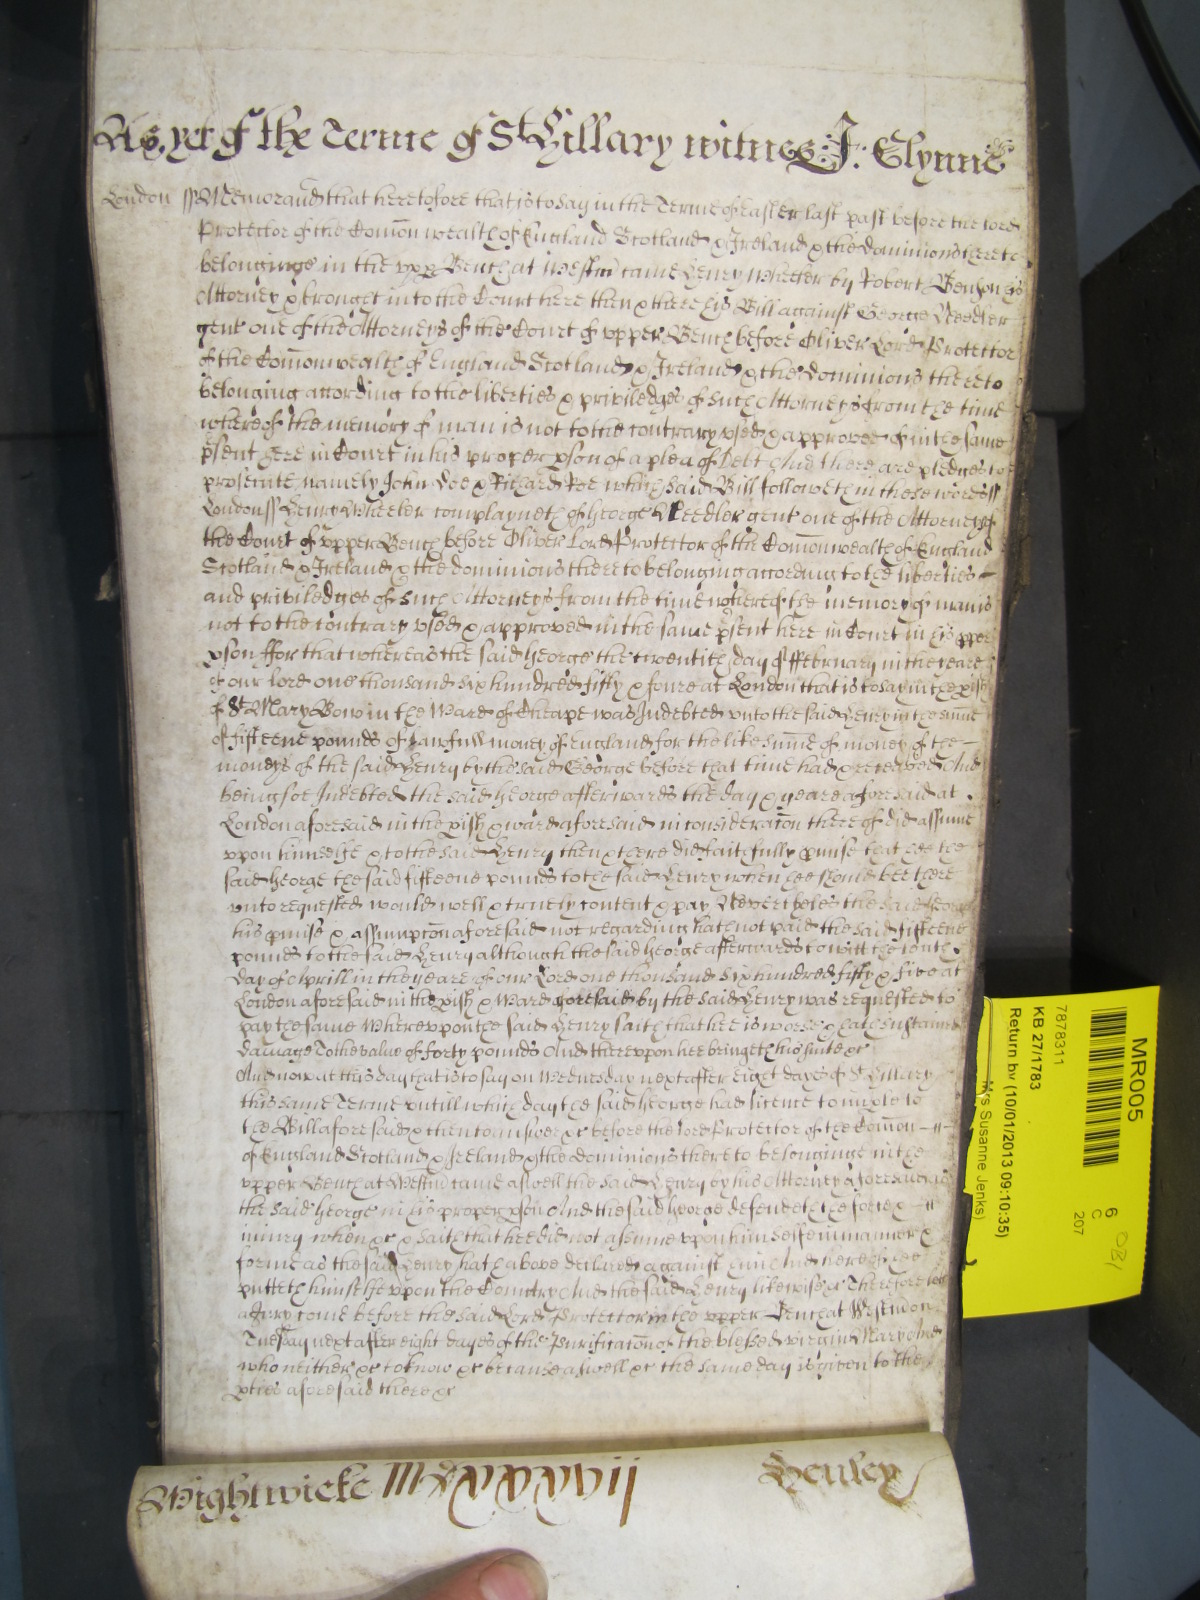 As yet of the Terme of St Hillary witnes: J: Glynne
London ss Memorand that heretofore that is to say in the Terme of Easter last past before the lord
Protector of the Comon wealth of England Scotland & Ireland & the dominions thereto
belonginge in the vpp Bench at Westm came Henry Wheeler by Robert Benson his
Attorney & brought into the Court here then & there his Bill against George Needler
gent one of the Attorneys of the Court of vpper Bench before Oliver Lord Protector
of the Comonwealth of England Scotland & Ireland & the dominions thereto
belonging according to the liberties & priviledges of such Attorneys from the time
whereof the memory of man is not to the contrary vsed & approved of in the same
psent here in Court in his proper pson of a plea of Debt And there are pledges to
prosecute namely John Doe & Richard Roe which said Bill followeth in these words ss
London ss Henry Wheeler complayneth of George Needler gent one of the Attorneys of
the Court of vpper Bench before Oliver Lord Protector of the Comonwealth of England
Scotland & Ireland & the dominions thereto belonging according to the liberties
and priviledges of such Attorneys from the time whereof the memory of man is
not to the contrary vsed & approved in the same psent here in Court in his pper
pson ffor that whereas the said George the twentith day of ffebruary in the yeare
of our lord one thousand six hundred fifty & foure at London that is to say in the pish
of St Mary Bow in the Ward of Cheape was Indebted vnto the said Henry in the sume
of fifteene pounds of lawfull money of England for the like sume of money of the
moneys of the said Henry by the said George before that time had & received And
being soe Indebted the said George afterwards the day & yeare aforesaid at
London aforesaid in the pish & ward aforesaid in consideracon thereof did assume
vpon himselfe & to the said Henry then & there did faithfully pmise that hee the
said George the said fifteene pounds to the said Henry when hee should bee there
vnto requested would well & truely content & pay Nevertheles the said George
his pmise & assumpcon aforesaid not regarding hath not paid the said fifteene
pounds to the said Henry although the said George afterwards to witt the tenth
day of Aprill in the yeare of our Lord one thousand six hundred fifty & five at
London aforesaid in the pish & Ward aforesaid by the said Henry was requested to
pay the same Wherevpon the said Henry saith that hee is worse & hath sustained
damage To the value of forty pounds And therevpon hee bringeth his suite &c
And now at this day that is to say on Wednesday next after eight dayes of St Hillary
this same Terme vntill which day the said George had licence to imple to
the Bill aforesaid & then to answer &c before the lord Protector of the Comon
of England Scotland & Ireland & the dominions thereto belonginge in the
vpper Bench at Westm came aswell the said Henry by his Attorney aforesaid as
the said George in his proper pson And the said George defendeth the force &
iniury when &c & saith that hee did not assume vpon himselfe in manner &
forme as the said Henry hath above declared against him And hereof hee
putteth himselfe vpon the Country And the said Henry likewise &c Therefore lett
a Jury come before the said Lord Protector in the vpper Bench at Westm on
Tuesday next after eight dayes of the Purificacon of the blessed virgin Mary And
who neither &c to know &c because aswell &c the same day is given to the
pties aforesaid there &c
Wightwicke Mlxxxxvij Henley
MR005
7878311
KB 27/1783
Return by (10/01/2013 09:10:35)
Mrs Susanne Jenks)
6
C
207